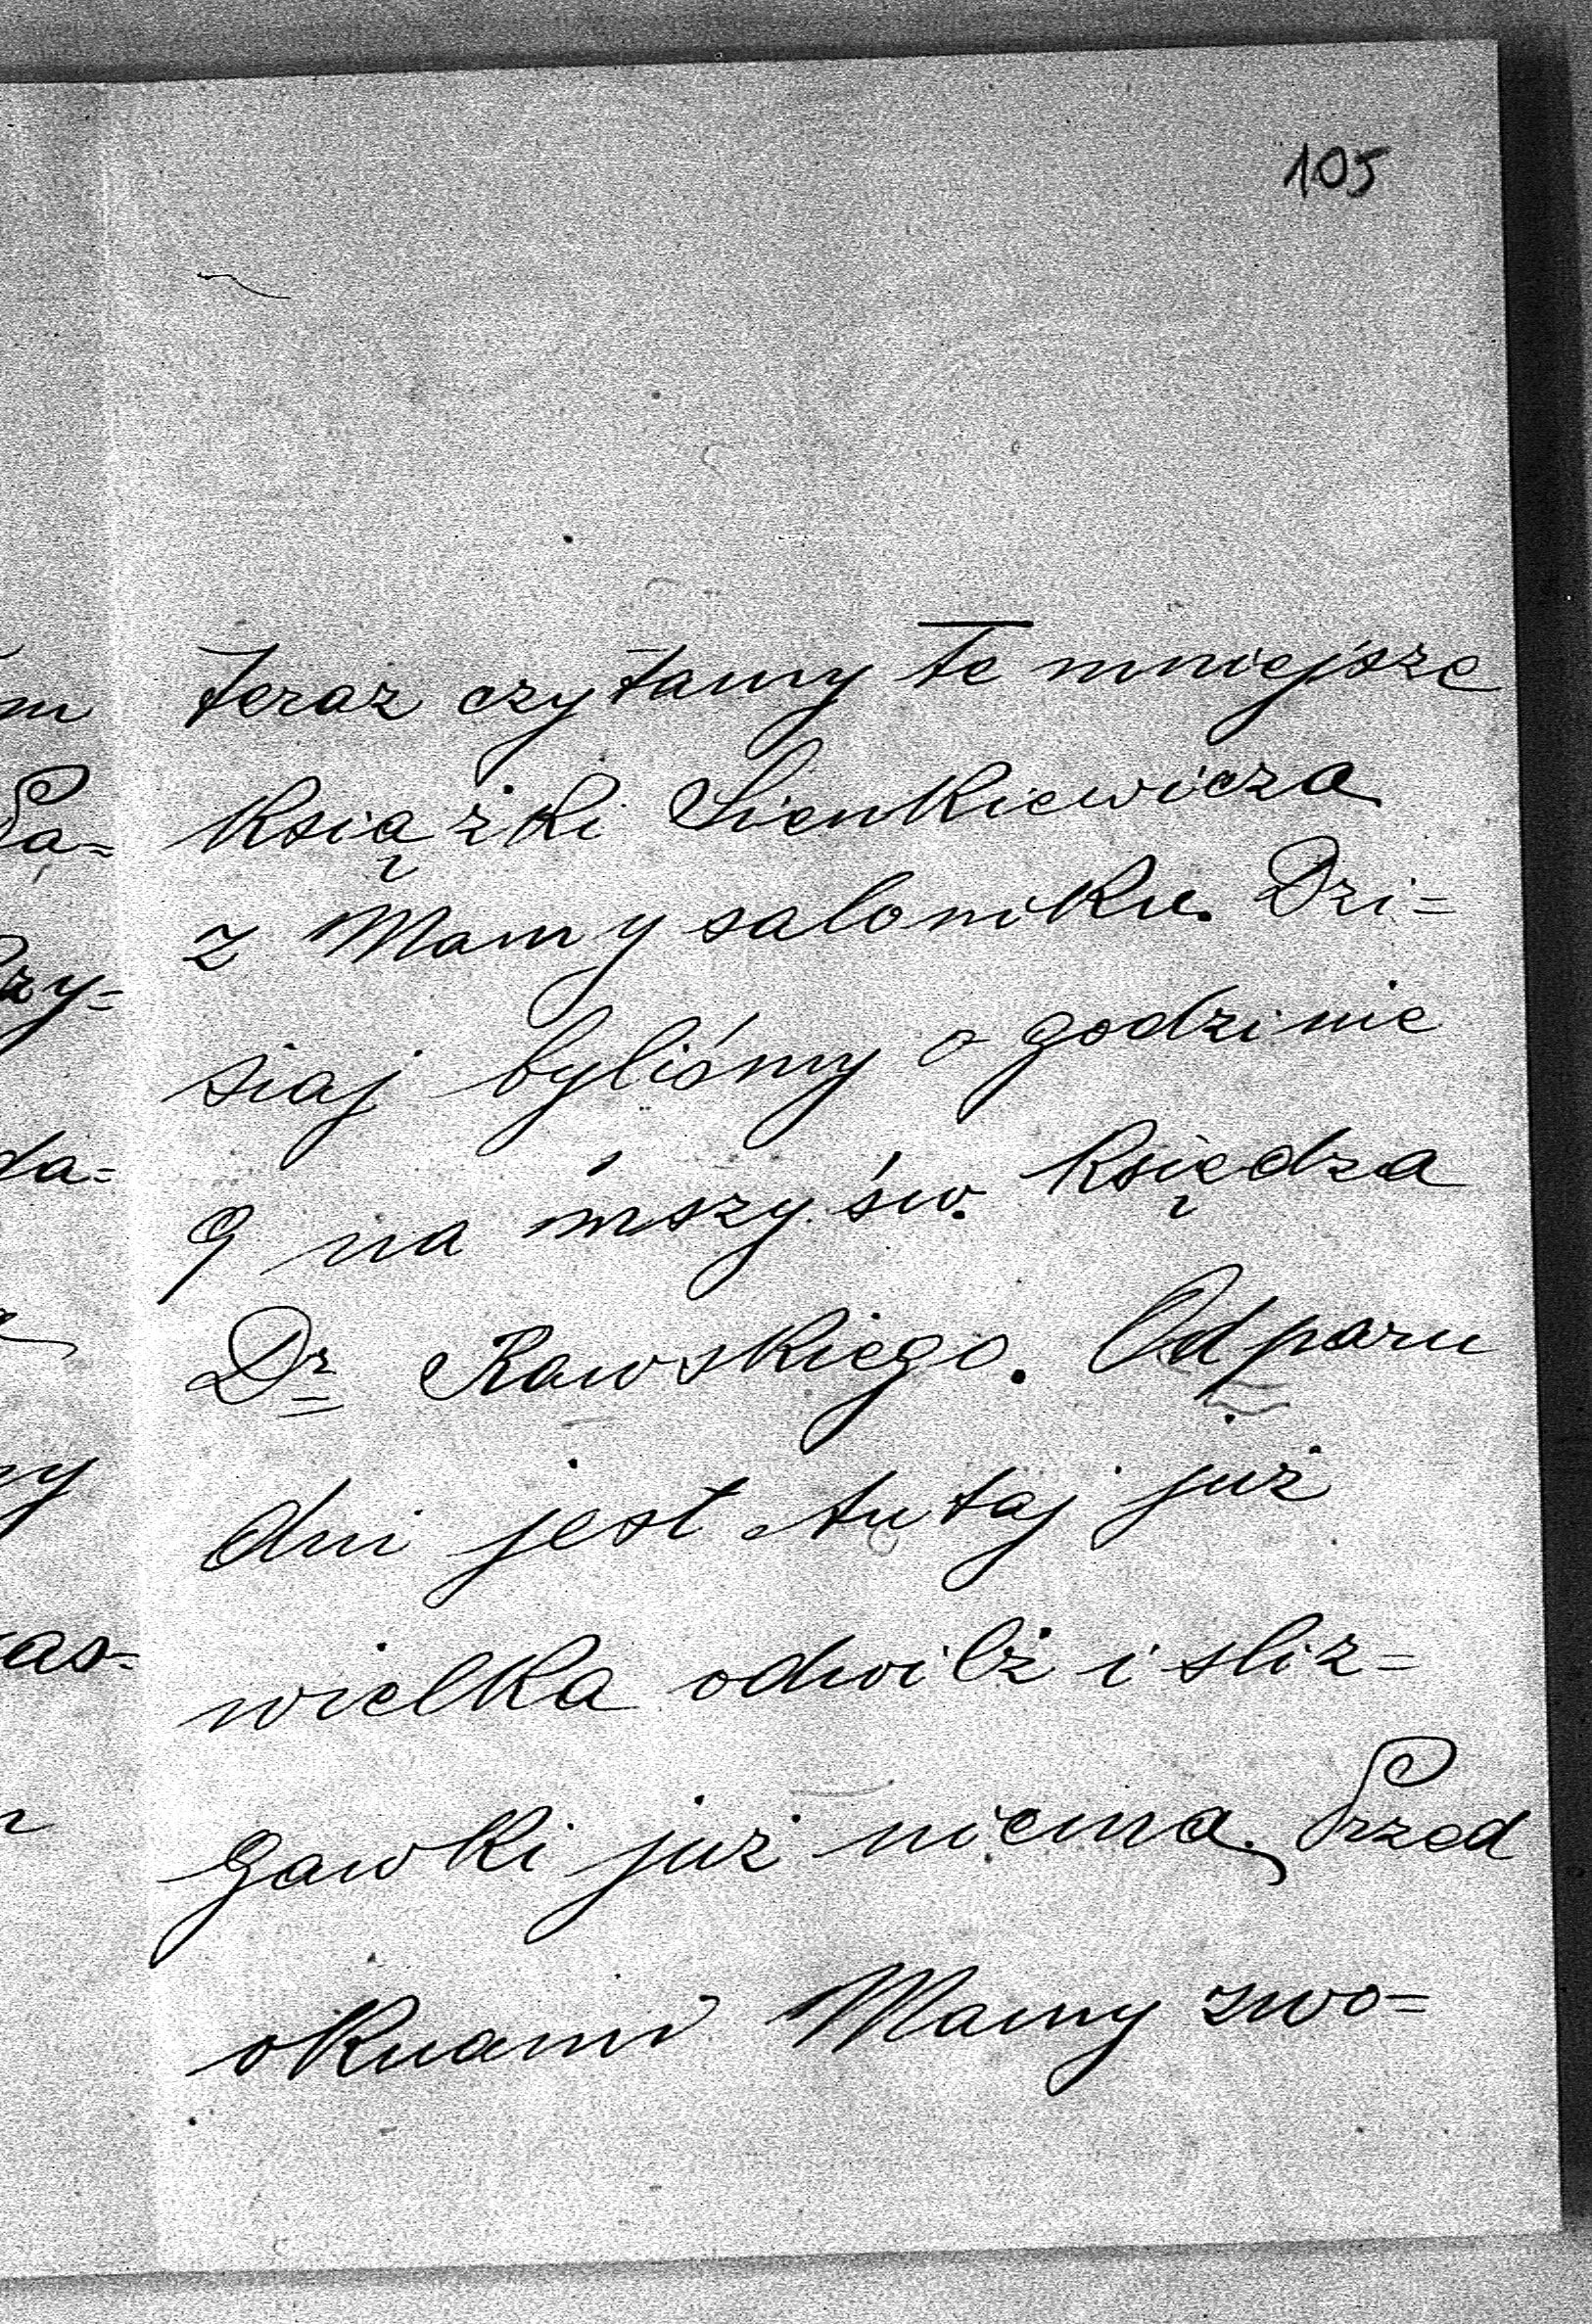 105
teraz czytamy te mniejsze
książki Sienkiewicza
z Mamy saloniku. Dzi=
siaj byliśmy o godzinie
9 na mszy św. księdza
Dr Rawskiego. Od paru
dni jest tutaj już
wielka odwilż i śliz=
gawki już niema. Przed
oknami Mamy zwo=
m
Pa=
rzy=
da=
ny
as=